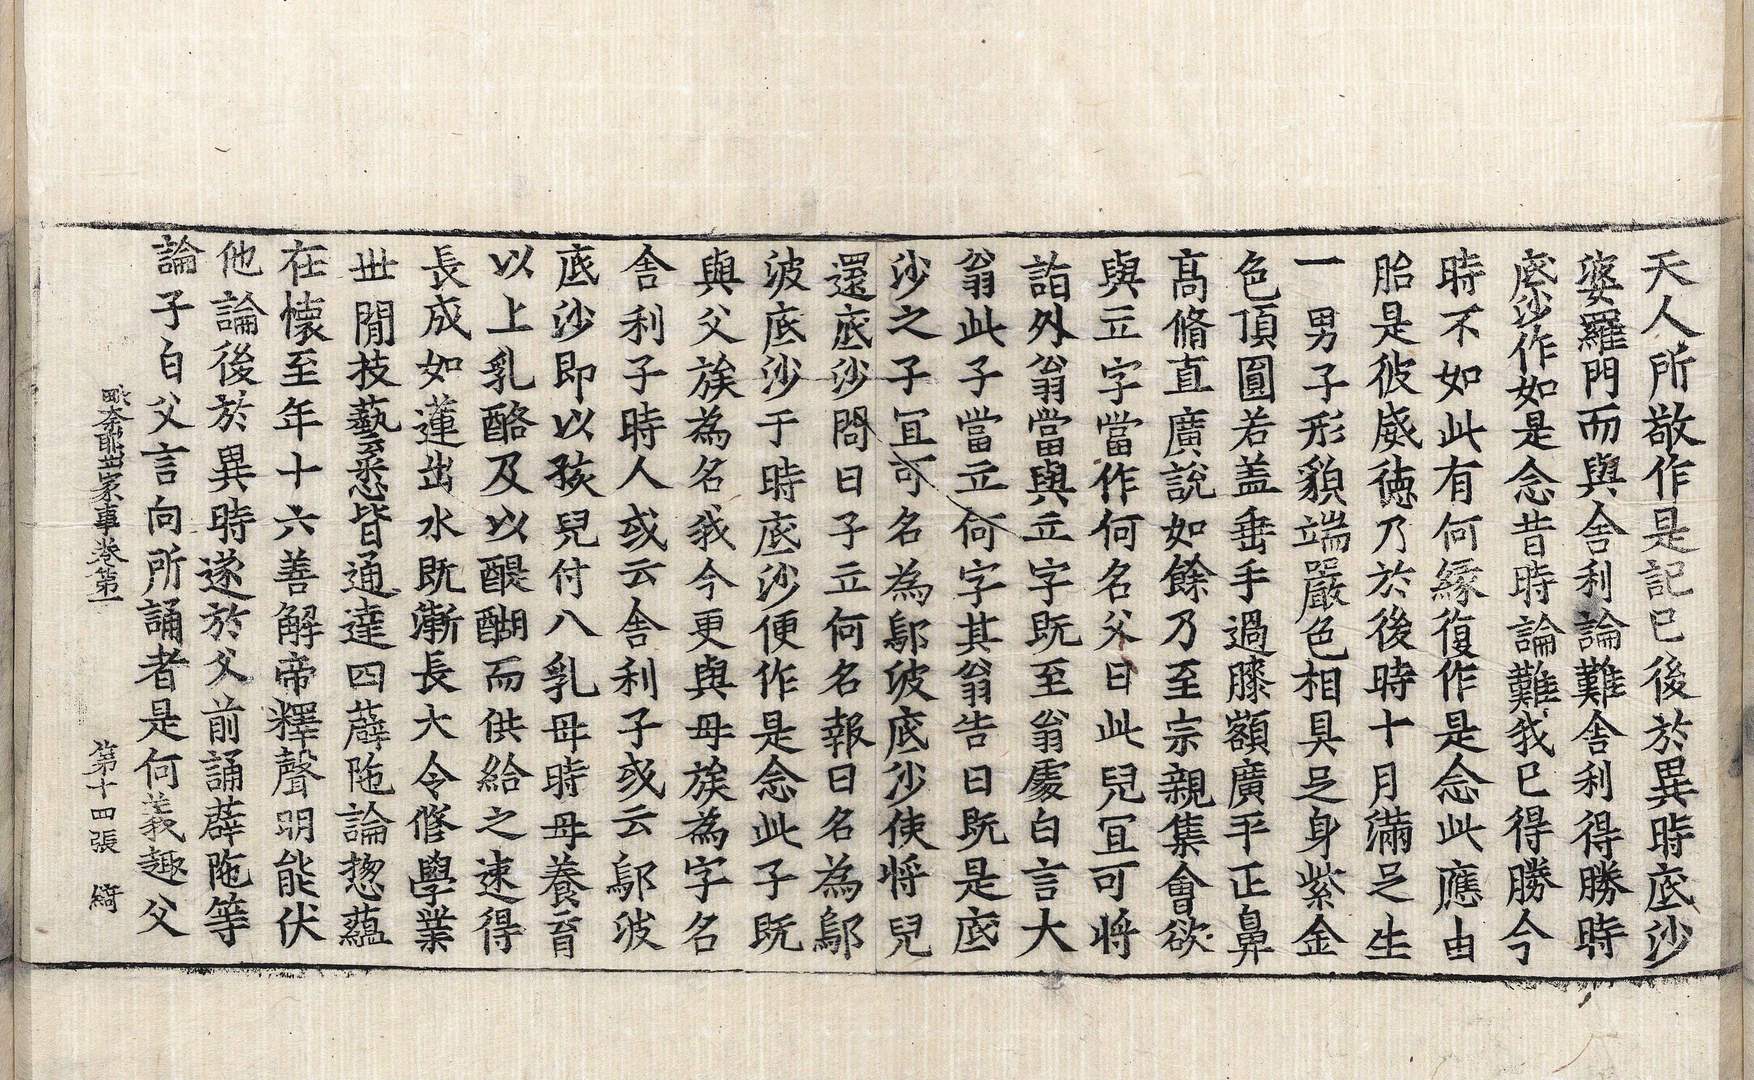 天人所敬作是記已後於異時底沙
婆羅門而與舍利論難舍利得勝時
底沙作如是念昔時論難我已得勝今
時不如此有何緣復作是念此應由
胎是彼威德乃於後時十月滿足生
一男子形貌端嚴色相具足身紫金
色頂圓若盖垂手過膝額廣平正鼻
高脩直廣說如餘乃至宗親集會欲
與立字當作何名父曰此兒冝可將
詣外翁當與立字既至翁處白言大
翁此子當立何字其翁告曰既是底
沙之子冝可名為鄔波底沙使將兒
還底沙問曰子立何名報曰名為鄔
波底沙于時底沙便作是念此子既
與父族為名我今更與母族為字名
舍利子時人或云舍利子或云鄔波
底沙即以孩兒付八乳母時母養育
以上乳酪及以醍醐而供給之速得
長成如蓮出水既漸長大令修學業
世間技藝悉皆通達四薜陁論惣蘊
在懷至年十六善解帝釋聲明能伏
他論後於異時遂於父前誦薜陁等
論子白父言向所誦者是何義趣父
毗奈耶出家事卷第一　第十四張　綺